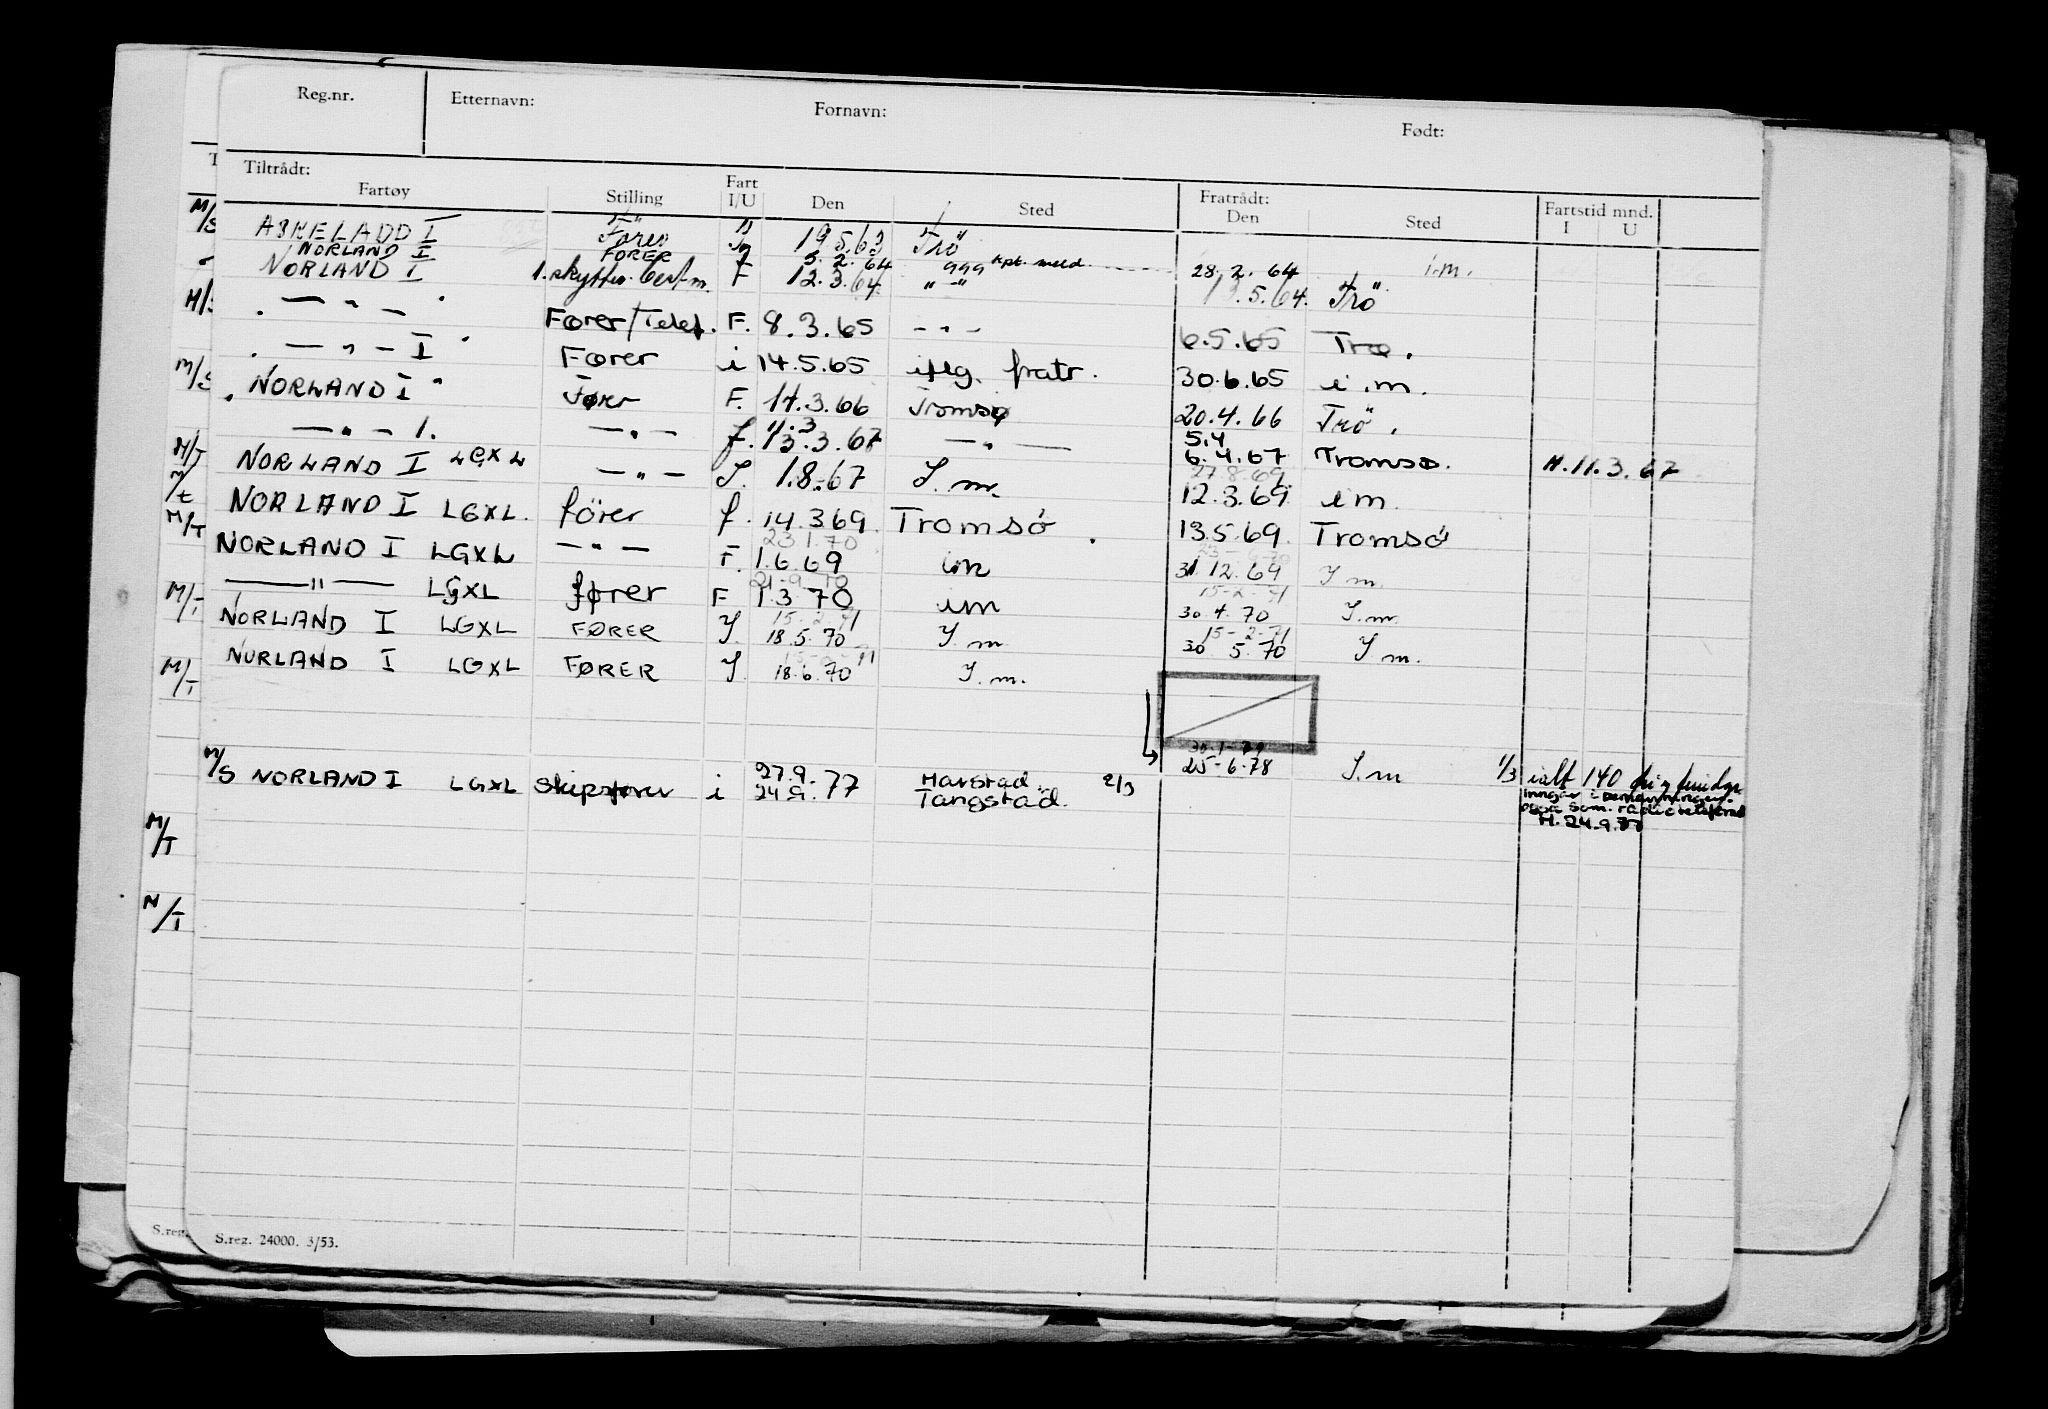 Reg.nr. Etternavn: Fornavn: Født:
Tiltrådt: Fratrådt:
Fartøy Stilling Fart I/U Den Sted Den Sted Fartstid mnd. I U
M/S ASKELADD I Fører 19.5.63 Trö
NORLAND I FØRER 5.2.64 kpt. meld. 28.2.64 i.m.
NORLAND I 1. skytter. F 12.3.64 " - " .5.64. Trö
— " — Fører/Telef. F. 8.3.65 - " - 6.5.65 Trø.
— " — I Fører i 14.5.65 iflg. fratr. 30.6.65 i.m.
NORLAND I Fører F. 14.3.66 Tromsø 20.4.66 Trö.
11.3 5.4
— " — 1. — " — f. 13.3.67 — " — 6.4.67 Tromsø. M.11.3.67
27.8.69
NORLAND I LGXL — " — I. 1.8.67 I.m. 12.3.69 im
NORLAND I LGXL. förer f. 14.369. Tromsö. 13.5.69 Tromsö
23 1.70
NORLAND I LGXL — " — F. 1.6.69 im 31.12.69 I m.
21-9-70 15-2-71
— " — LGXL fører F 1.3 70 im 30.4.70 I.m.
15-2-71 15-2-71
NORLAND I LGXL FØRER I. 18.5.70 I.m 30 5.70 I m.
NORLAND I LGXL FØRER I. 18.6.70 I.m.
27.9. Harstad. 2/3 30-1-79
M/S NORLAND I LGXL Skipsfører i 24.9.77 Tangstad. 25-6-78 I.m 1/3 ialt 140
inngår i bemanningen.
også som. radiotelefonist
M.24.9.77
M/S
M/S
M/S
M/T
M/t
M/T
M/T
M/T
M/T
M/T
S.reg.
S.reg. 24000. 3/53.